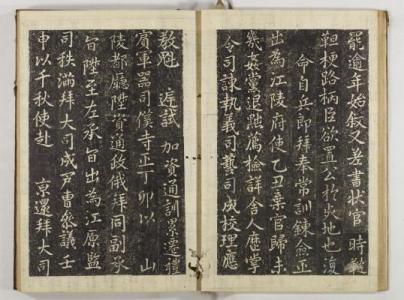 罷逾年始敍又差書狀官 時韃
靼梗路柄臣欲置公於死地也復
命自兵郎拜奉常訓鍊僉正
出為江陵府使乙丑棄官歸未
幾姦黨退黜薦檢詳舍人歷掌
令司諫執義司藝司成校理應
教魁 廷試 加資通訓累遷禮
賓軍器司僕寺正丁卯以 山
陵都廳陞資通政俄拜同副承
旨陞至左承旨出為江原監
司秩滿拜大司成戶曹參議壬
申以千秋使赴 京還拜大司